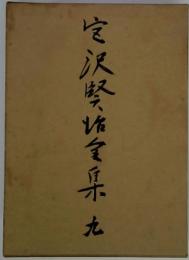 宮沢賢治全集 九